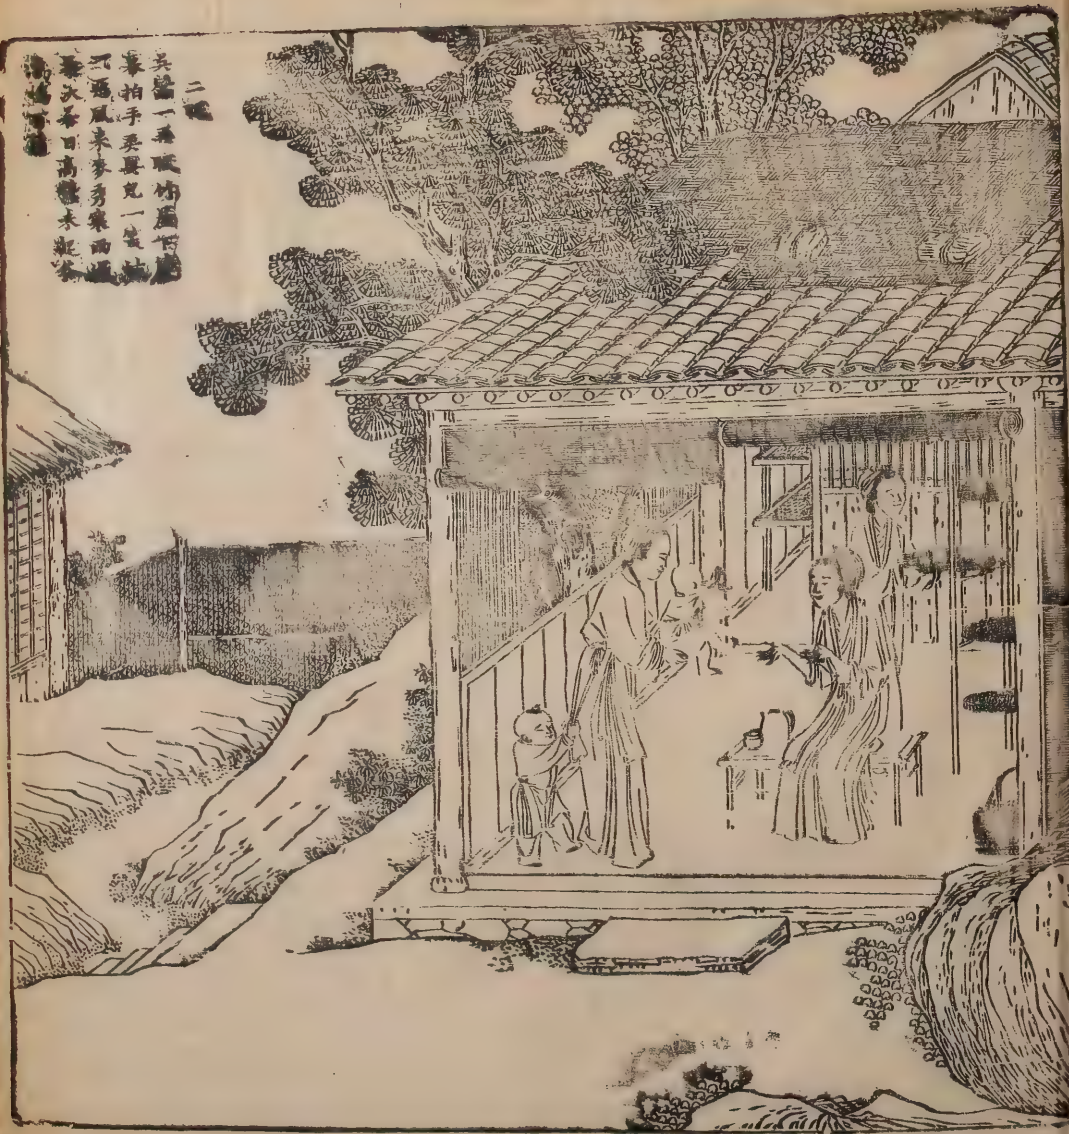 二眠
吳蠶一再眠竹屋下簾
幕拍手弄嬰兒一笑姑
不惡風來麥秀寒雨過
桑沃若日高蠶未起谷
鳥鳴百箔